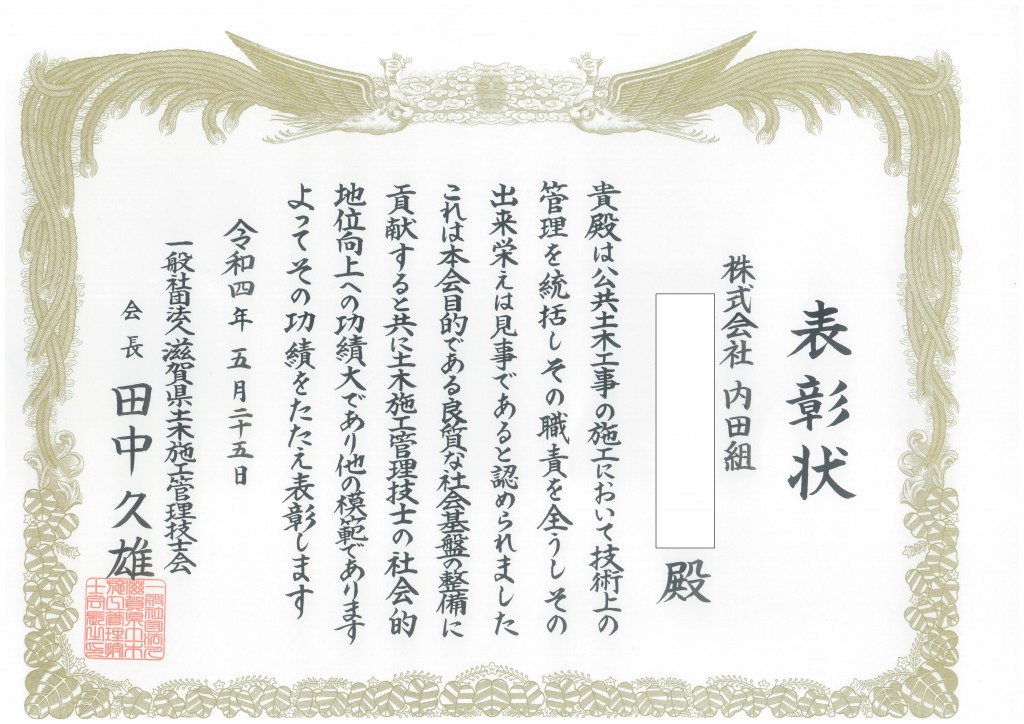 表彰状
株式会社 内田組
殿
貴殿は公共土木工事の施工において技術上の
管理を統括しその職責を全うしその
出来栄えは見事であると認められました
これは本会目的である良質な社会基盤の整備に
貢献すると共に土木施工管理技士の社会的
地位向上への功績大であり他の模範であります
よってその功績をたたえ表彰します
令和四年 五月二十五日
一般社団法人 滋賀県土木施工管理技士会
会長 田中久雄